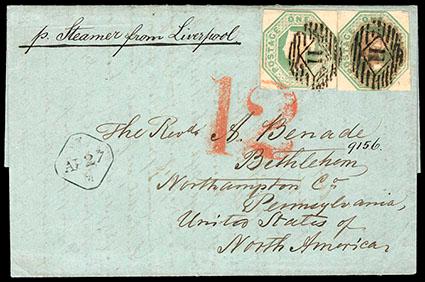 p. Steamer from Liverpool
POSTAGE ONE
11
POSTAGE ONE
11
12
AP 27
The Revd. A. Benade
9156.
Bethlehem
Northampton Co.
Pennsylvania,
United States of
North America